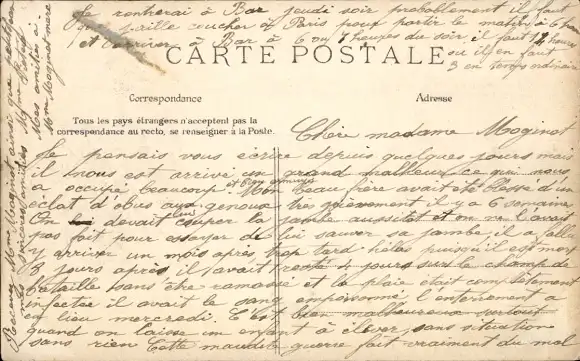 Je rentrerai à Bar jeudi soir probablement il faut
que j'aille coucher à Paris pour partir le matin à 6 heures
et arriver à Bar à 6 ou 7 heures du soir il faut 12 heures
où il en faut
3 en temps ordinaire
CARTE POSTALE
Correspondance
Adresse
Tous les pays étrangers n'acceptent pas la
correspondance au recto, se renseigner à la Poste.
Chère madame Moginot
Je pensais vous écrire depuis quelques jours mais
il nous est arrivé un grand malheur ce qui nous
a occupé beaucoup et bien ennuyés Mon beau frère avait été blessé d'un
éclat d'obus aux genoux très grièvement il y a 6 semaines
On devait lui couper la jambe aussitôt et on ne l'avait
pas fait pour essayer de lui sauver sa jambe il a fallu
y arriver un mois après trop tard hélas puisqu'il est mort
8 jours après, il avait resté 4 jours sur le champ de
bataille sans être ramassé et la plaie était complètement
infectée il avait le sang empoisonné l'enterrement a
eu lieu mercredi. C'est bien malheureux surtout
quand on laisse un enfant à élever, sans situation
sans rien Cette maudite guerre fait vraiment du mal
Recevez Mme Moginot ainsi que
sincères amitiés
Mes amitiés à
Mme Moginot mère